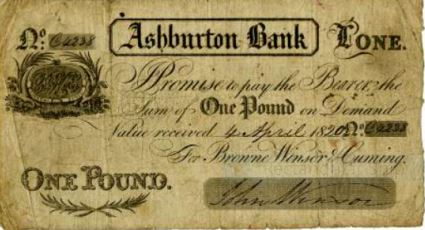 No. C4238 Ashburton Bank £ONE.
I Promise to pay the Bearer, the
Sum of One Pound on Demand
Value received 4 April 1820 No. C4238
For Browne Winsor & Cuming.
ONE POUND.
John Winsor